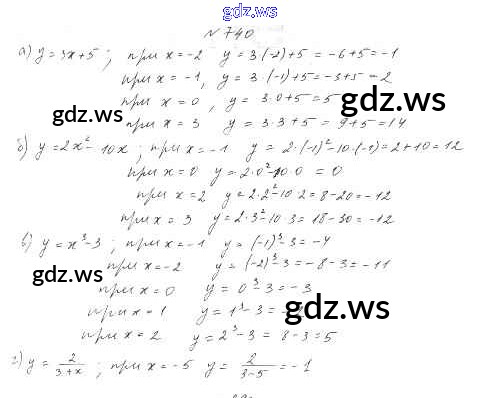 gdz.ws
№ 740
а) y = 3x+5; при x = -2 y = 3·(-2)+5 = -6+5 = -1
при x = -1, y = 3·(-1)+5 = -3+5 = 2
при x = 0, y = 3·0+5 = 5
gdz.ws
при x = 3 y = 3·3+5 = 9+5 = 14
gdz.ws
б) y = 2x² - 10x; при x = -1 y = 2·(-1)² - 10·(-1) = 2+10 = 12
при x = 0 y = 2·0² - 10·0 = 0
при x = 2 y = 2·2² - 10·2 = 8-20 = -12
при x = 3 y = 2·3² - 10·3 = 18-30 = -12
в) y = x³-3; при x = -1 y = (-1)³-3 = -4
при x = -2 y = (-2)³-3 = -8-3 = -11
gdz.ws
при x = 0 y = 0³-3 = -3
при x = 1 y = 1³-3 = -2
gdz.ws
при x = 2 y = 2³-3 = 8-3 = 5
г) y = 2/(3+x); при x = -5 y = 2/(3-5) = -1